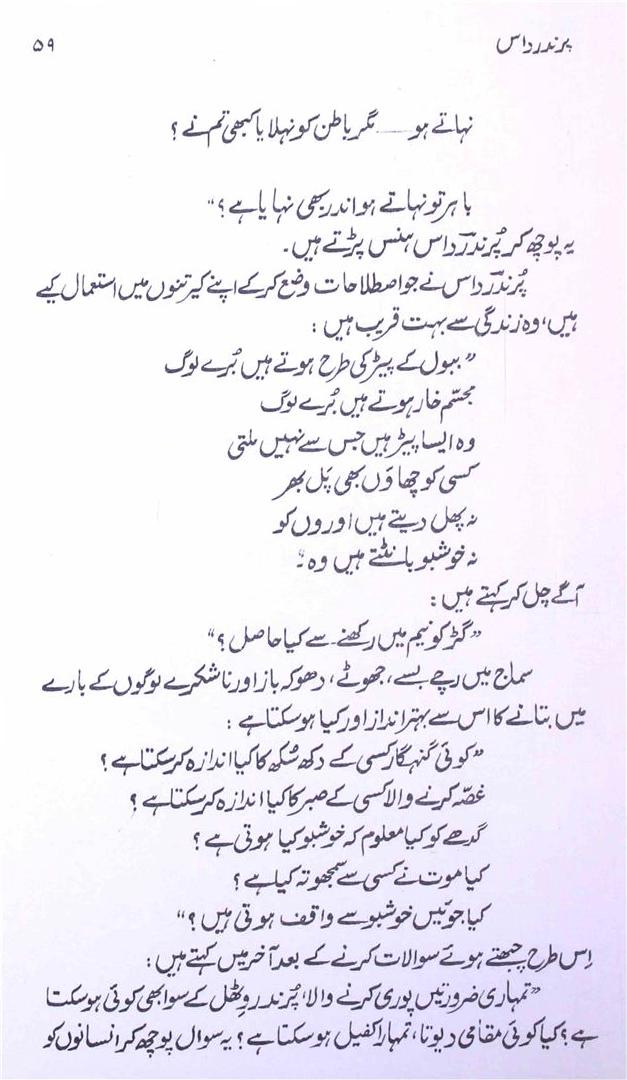 پرندرداس ۵۹
نہاتے ہو ـــــ مگر باطن کو نہلایا کبھی تم نے ؟
باہر تو نہاتے ہو اندر بھی نہایا ہے ؟“
یہ پوچھ کر پُرندرداس ہنس پڑتے ہیں۔
پُرندرداس نے جو اصطلاحات وضع کر کے اپنے کیرتنوں میں استعمال کیے
ہیں، وہ زندگی سے بہت قریب ہیں :
”ببول کے پیڑ کی طرح ہوتے ہیں بُرے لوگ
مجسّم خار ہوتے ہیں بُرے لوگ
وہ ایسا پیڑ ہیں جس سے نہیں ملتی
کسی کو چھاؤں بھی پَل بھر
نہ پھل دیتے ہیں اوروں کو
نہ خوشبو بانٹتے ہیں وہ۔“
آگے چل کر کہتے ہیں :
”گڑ کو نیم میں رکھنے سے کیا حاصل ؟“
سماج میں رچے بسے، جھوٹے، دھوکہ باز اور ناشکرے لوگوں کے بارے
میں بتانے کا اس سے بہتر انداز اور کیا ہو سکتا ہے :
”کوئی گنہگار کسی کے دکھ سُکھ کا کیا اندازہ کر سکتا ہے ؟
غصّہ کرنے والا کسی کے صبر کا کیا اندازہ کر سکتا ہے ؟
گدھے کو کیا معلوم کہ خوشبو کیا ہوتی ہے ؟
کیا موت نے کسی سے سمجھوتہ کیا ہے ؟
کیا جوئیں خوشبو سے واقف ہوتی ہیں ؟“
اِس طرح چبھتے ہوئے سوالات کرنے کے بعد آخر میں کہتے ہیں :
”تمہاری ضرورتیں پوری کرنے والا، پُرندر وِٹھل کے سوا بھی کوئی ہو سکتا
ہے ؟ کیا کوئی مقامی دیوتا، تمہارا کفیل ہو سکتا ہے ؟ یہ سوال پوچھ کر انسانوں کو